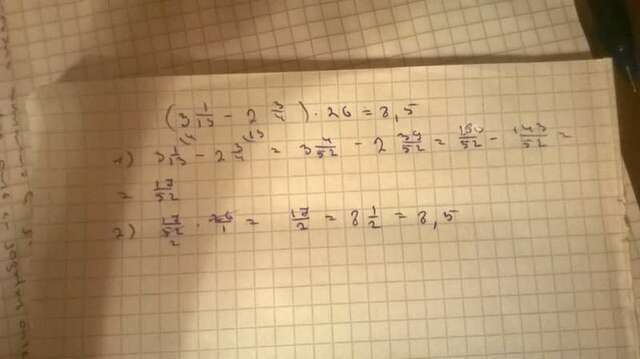 (3 1/13 - 2 3/4) · 26 = 8,5
1) 3 1/13 - 2 3/4 = 3 4/52 - 2 39/52 = 160/52 - 143/52 =
= 17/52
2) 17/52 · 26/1 = 17/2 = 8 1/2 = 8,5